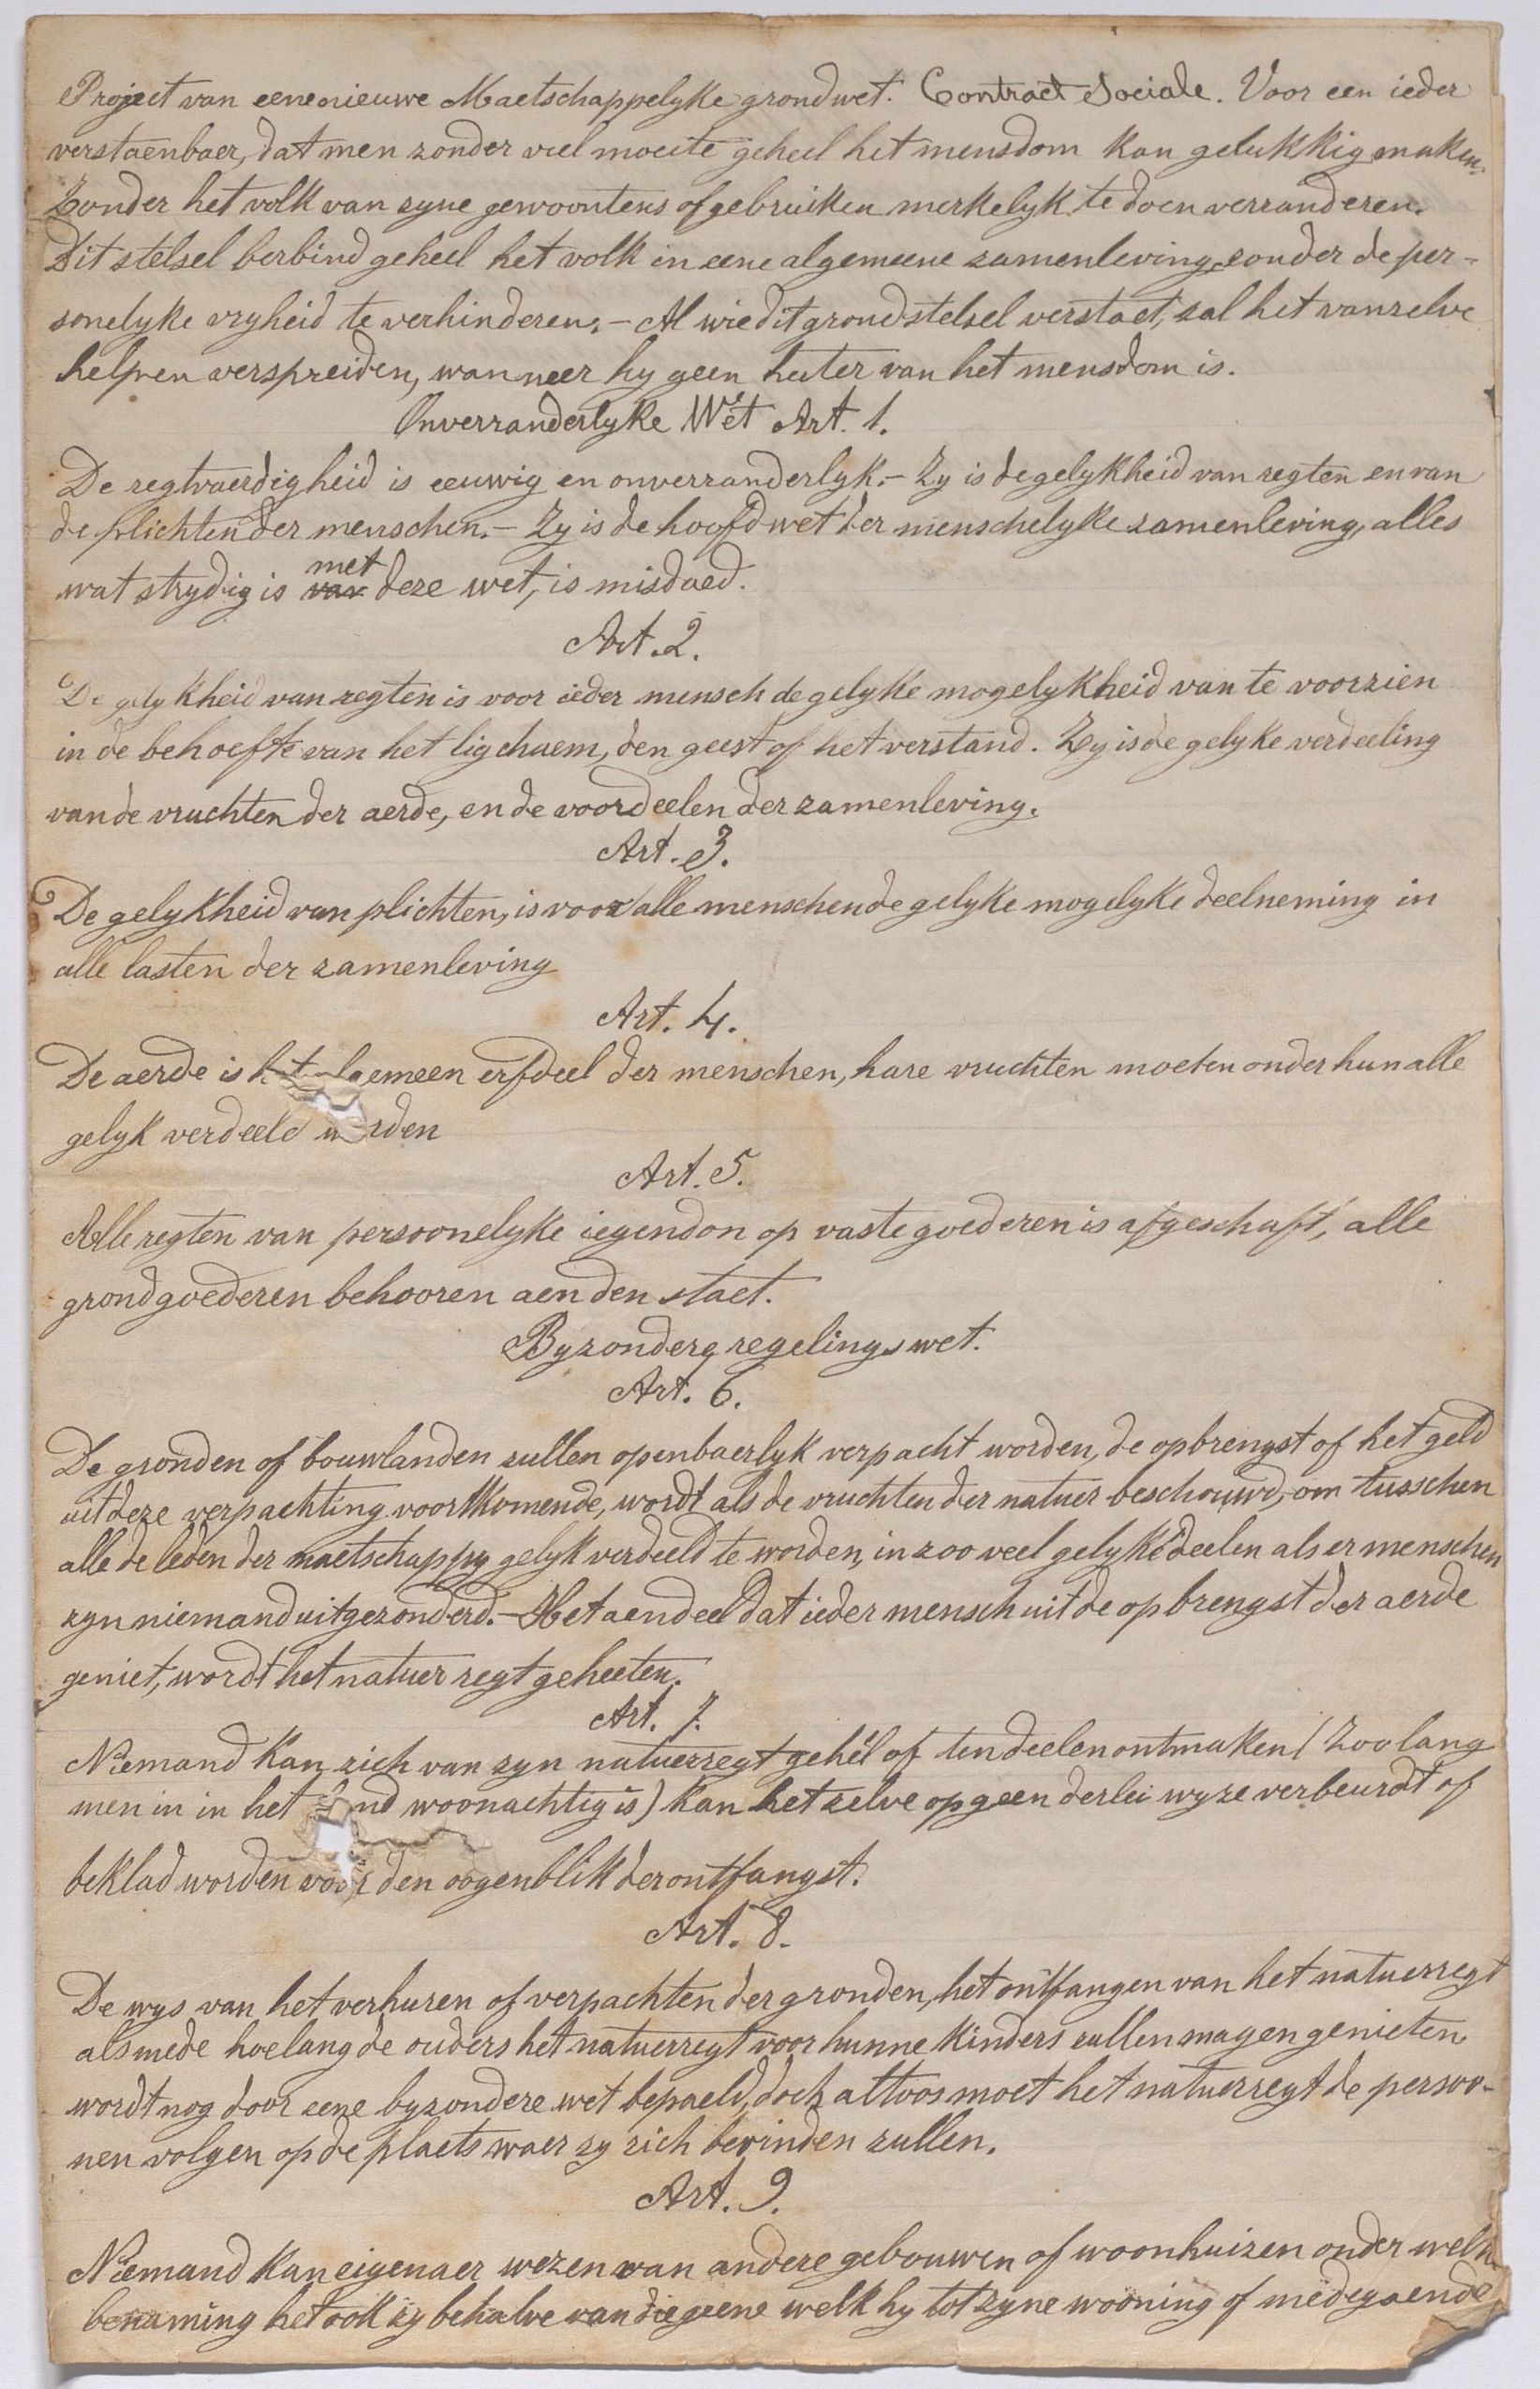 Project van eene nieuwe Maetschappelyke grondwet. Contract Sociale. Voor een ieder
verstaenbaer, dat men zonder veel moeite geheel het mensdom kan gelukkig maken.
Zonder het volk van zyne gewoontens of gebruiken merkelyk te doen verranderen.
Dit stelsel berbind geheel het volk in eene algemeene zamenleving, zonder de per-
sonelyke vryheid te verhinderen. - Al wie dit grondstelsel verstaet, zal het vanzelve
helpen verspreiden, wanneer hy geen hater van het mensdom is.
Onverranderlyke Wet Art. 1.
De regtvaerdigheid is eeuwig en onverranderlyk. - Zy is de gelykheid van regten en van
de plichten der menschen. - Zy is de hoofdwet der menschelyke zamenleving, alles
wat strydig is van met deze wet, is misdaed.
Art. 2.
De gelykheid van regten is voor ieder mensch de gelyke mogelykheid van te voorzien
in de behoefte van het lighaem, den geest of het verstand. Zy is de gelyke verdeeling
van de vruchten der aerde, en de voordeelen der zamenleving.
Art. 3.
De gelykheid van plichten, is voor alle menschen de gelyke mogelyke deelneming in
alle lasten der zamenleving
Art. 4.
De aerde is het algemeen erfdeel der menschen, hare vruchten moeten onder hun alle
gelyk verdeeld worden
Art. 5.
Alle regten van persoonelyke iegendon op vaste goederen is afgeschaft, alle
grondgoederen behooren aen den staet.
Byzondere regelings wet.
Art. 6.
De gronden of bouwlanden zullen openbaerlyk verpacht worden, de opbrengst of het geld
uit deze verpachting voortkomende, wordt als de vruchten der natuer beschouwd, om tusschen
alle de leden der maetschappy gelyk verdeeld te worden, in zoo veel gelyke deelen als er menschen
zyn niemand uitgezonderd. - Het aendeel dat ieder mensch uit de opbrengst der aerde
geniet, wordt het natuer regt geheeten.
Art. 7.
Niemand kan zich van zyn natuerregt geheel of ten deelen ontmaken (Zoo lang
men in in het land woonachtig is) kan het zelve op geenderlei wyze verbeurdt of
beklad worden voor den oogenblik der ontfangst.
Art. 8.
De wys van het verhuren of verpachten der gronden, het ontfangen van het natuerregt
alsmede hoelang de ouders het natuerregt voor hunne kinders zullen magen genieten
wordt nog door eene byzondere wet bepaeld, doch altoos moet het natuerregt de persoo-
nen volgen op de plaets waer zy zich bevinden zullen.
Art. 9.
Niemand kan eigenaer wezen van andere gebouwen of woonhuizen onder welke
benaming het ook zy behalve van diegeene welk hy tot zyne wooning of medegaende